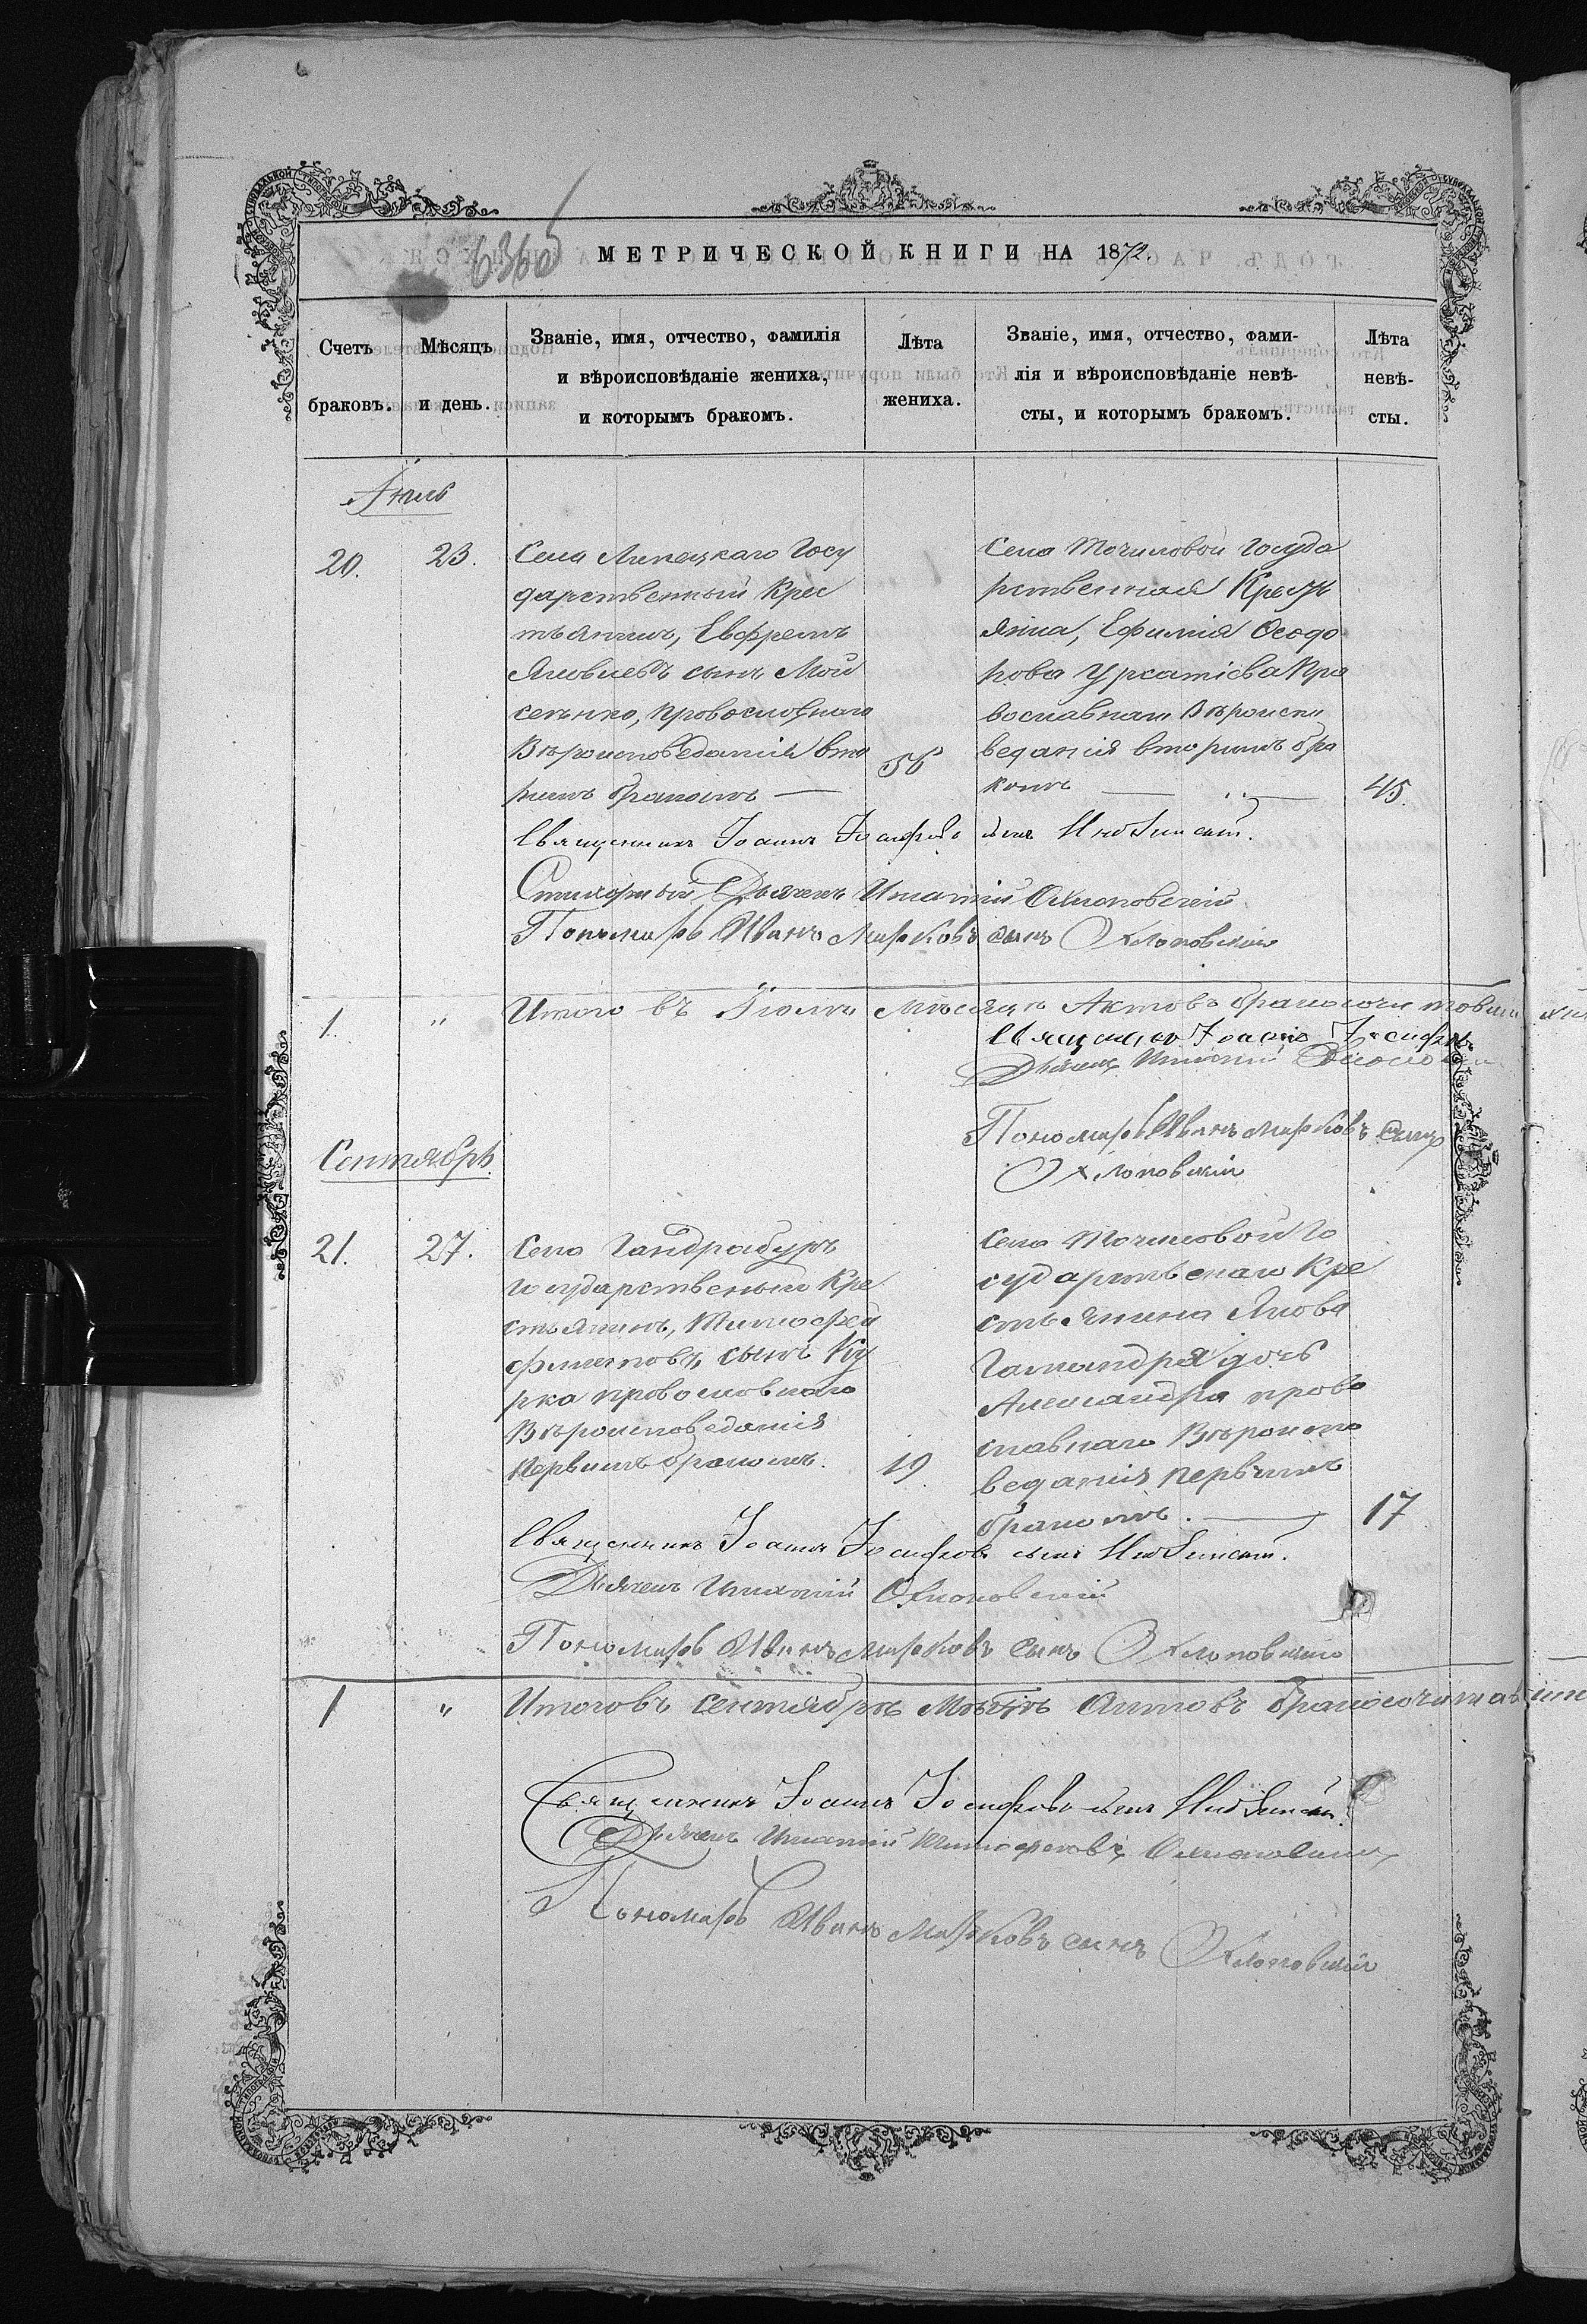 МЕТРИЧЕСКОЙ КНИГИ НА 1872.
Счетъ браковъ.
Мѣсяцъ и день.
Званіе, имя, отчество, фамилія
и вѣроисповѣданіе жениха,
и которымъ бракомъ.
Лѣта жениха.
Званіе, имя, отчество, фами-
лія и вѣроисповѣданіе невѣ-
сты, и которымъ бракомъ.
Лѣта невѣ-
сты.
20.
23.
Села Липецкаго Госу
дарственный Крес
тьянинъ, Евфремъ
Яковлевъ сынъ Мой
сеенко, Православнаго
Вѣроисповеданія вто
рымъ бракомъ —
56
Села Точиловой Госуда
рственная Крестъ
янка, Ефимія Ѳеодо
рова Пра
вославнаго Вѣроиспо
веданія вторимъ бра
комъ —
45.
Священникъ Іоаннъ Іосифовъ сынъ
Стихарный Дьячекъ Игнатій Охлоповскій
Пономарь Иванъ Марковъ сынъ Охлоповскій
1.
"
Итого въ Іюлѣ Мѣсяцѣ Актовъ бракосочитовши
Священникъ Іоаннъ Іосифовъ
Дьячекъ Игнатій
Пономарь Иванъ Марковъ Сынъ
Охлоповскій
Сентябрь
21.
27.
Села Гандрабуръ
Государственный Кре
стьянинъ, Тимофей
Филиповъ, сынъ Ку
рка провословнаго
Вѣроисповеданія
Первимъ бракомъ.
19
Села Точиловой Го
сударственаго Кре
стьянина Якова
дочь
Александра право
славнаго Вѣроиспо
веданія первымъ
бракомъ. —
17
Священникъ Іоаннъ Іосифовъ сынъ
Дьячекъ Игнатій Охлоповскій
Пономарь Иванъ Марковъ Сынъ Охлоповскій
1
"
Итоговъ Сентябрѣ Мѣсяцѣ Актовъ бракосочитавши
Священникъ Іоаннъ Іосифовъ сынъ
Дьячекъ Игнатій Тимофеовъ Охлоповскій
Пономарь Иванъ Марковъ сынъ Охлоповскій